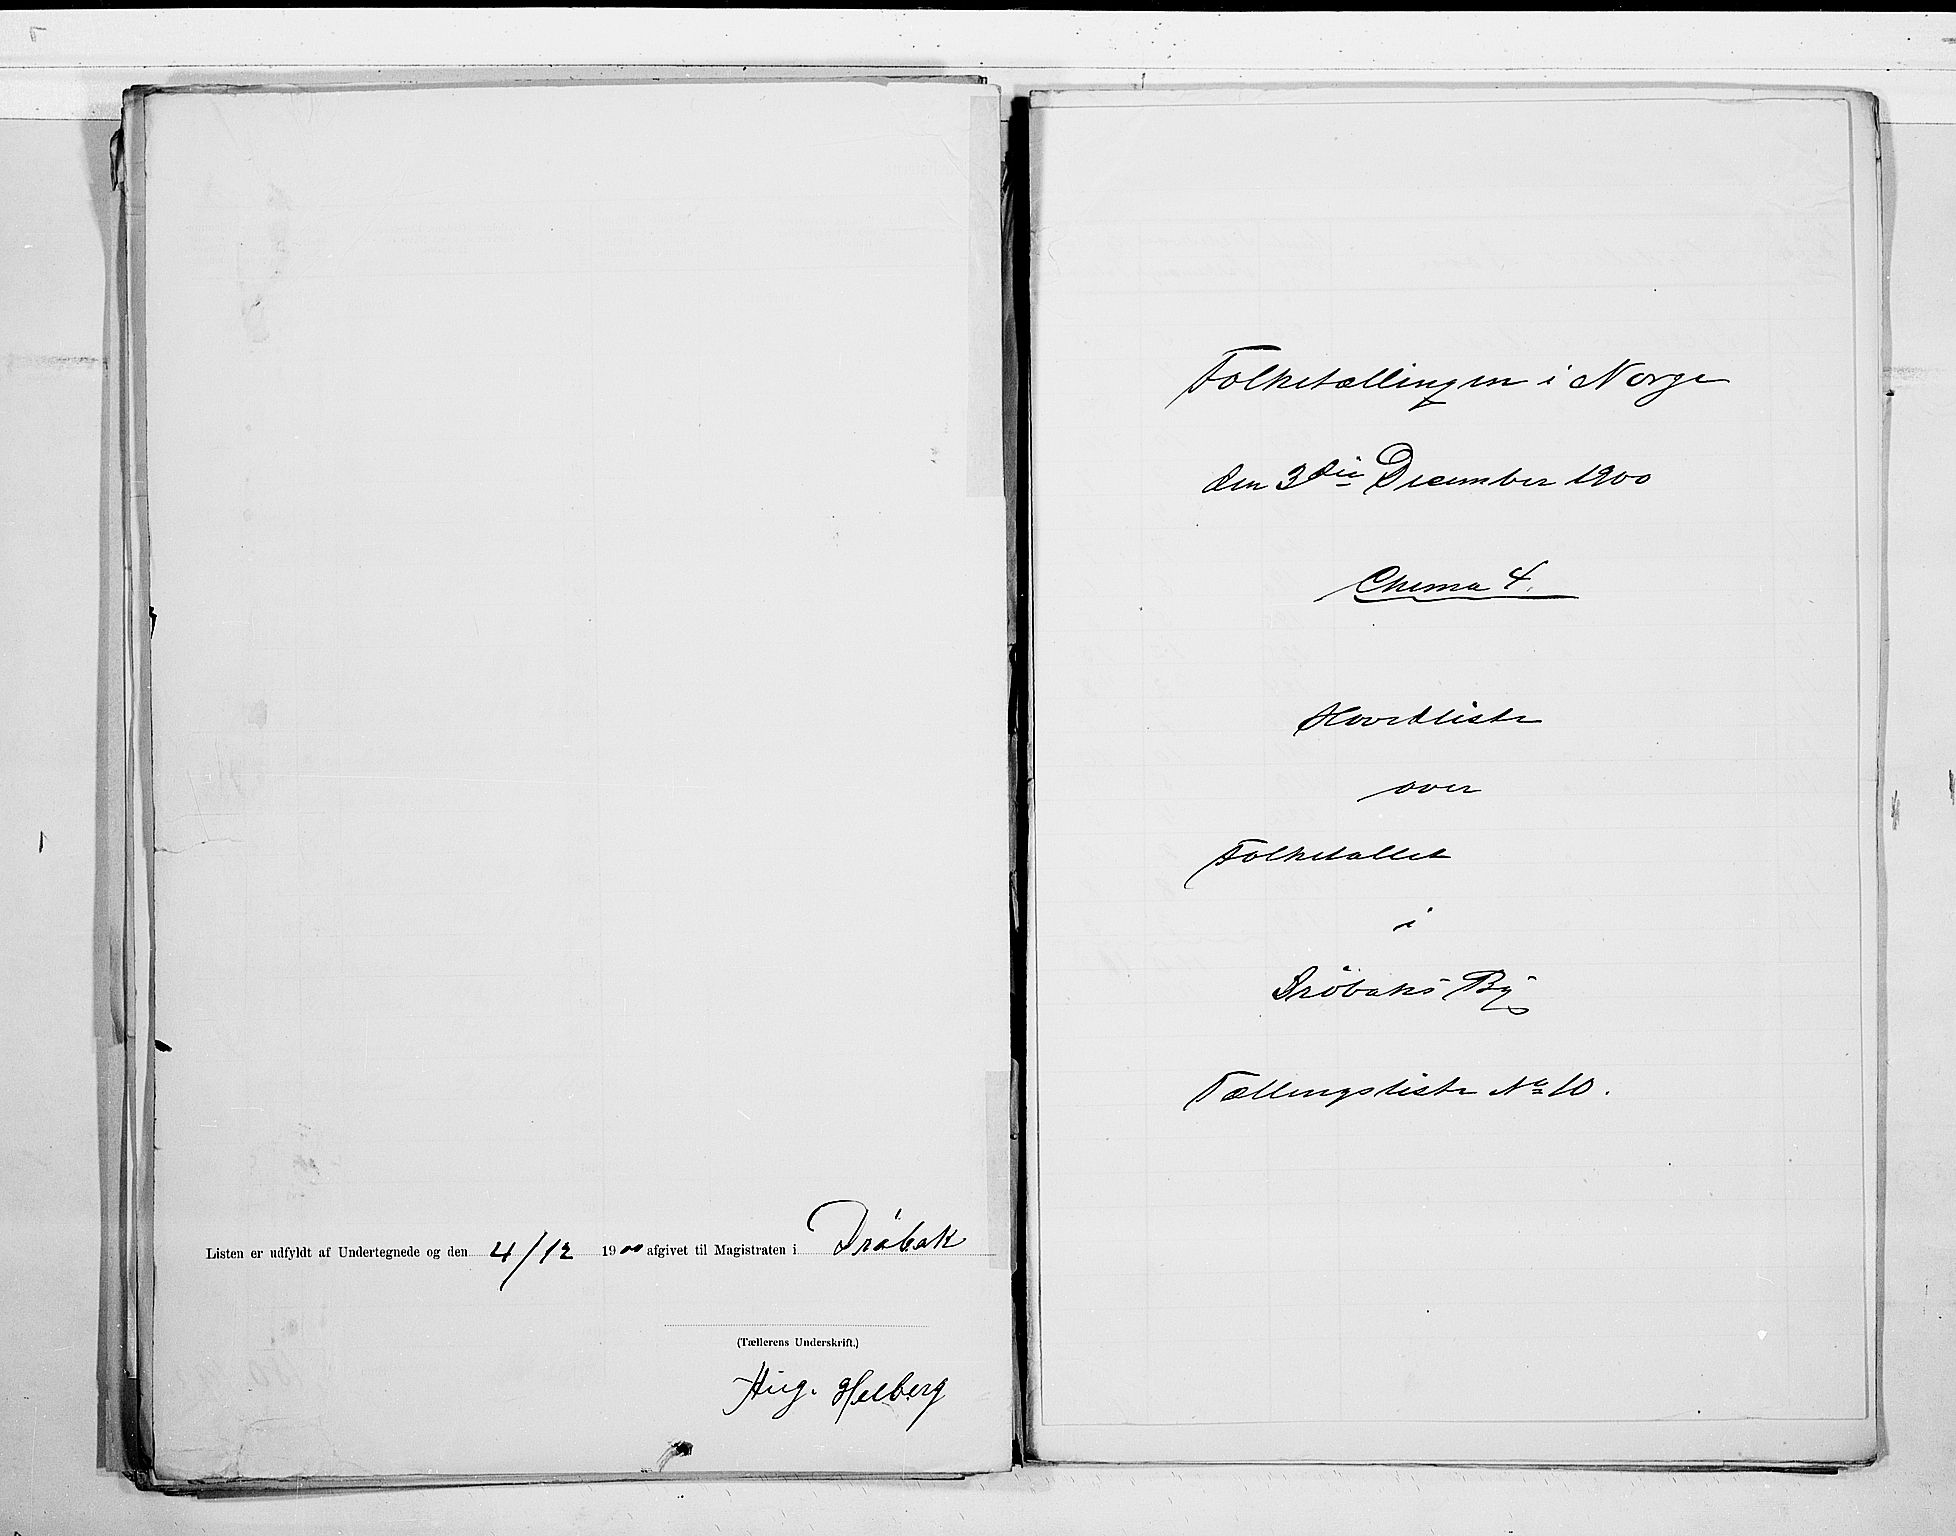 Listen er udfyldt af Undertegnede og den 4/12 1900 afgivet til Magistraten i Drøbak
(Tællerens Underskrift.)
Aug. Helberg
Folketællingen i Norge
den 3die December 1900
Chema 4.
Hovedliste
over
Folketallet
i
Drøbaks By
Tællingsliste No 10.